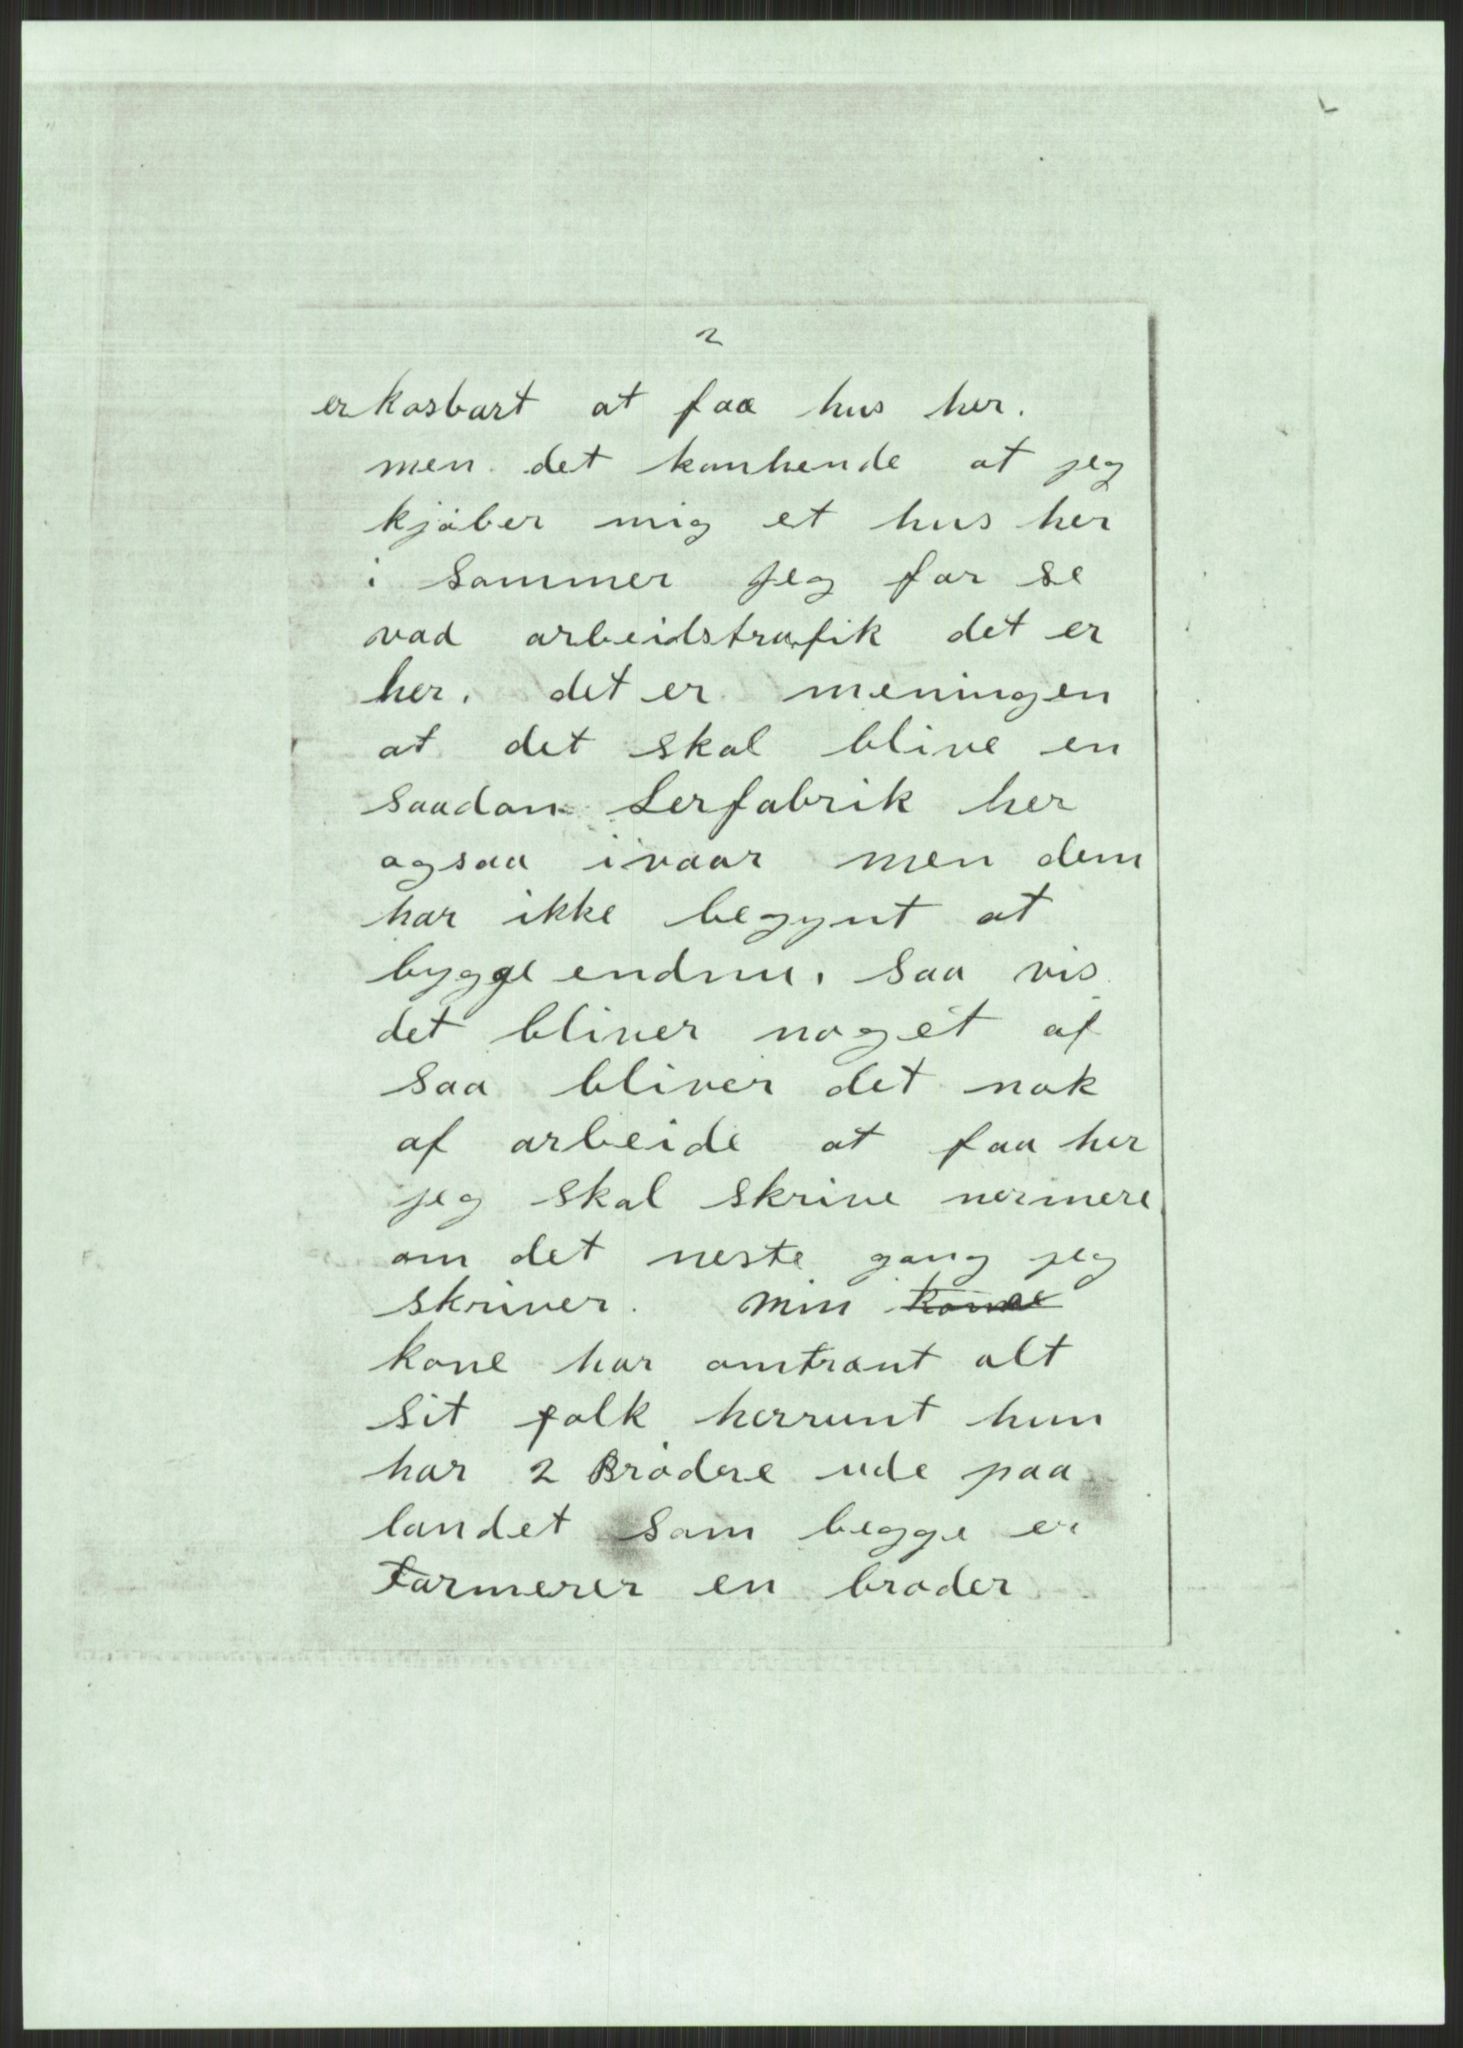 2
er kosbart at faa hus her.
men det kanhende at jeg
kjøber mig et hus her
i sommer jeg far se
vad arbeidstrafik det er
her. det er meningen
at det skal blive en
saadan Lerfabrik her
ogsaa i vaar men dem
har ikke begynt at
bygge endnu. saa vis
det bliver noget af
saa bliver det nok
af arbeide at faa her
jeg skal skrive nermere
om det neste gang jeg
skriver. Min
kone har omtrant alt
sit folk herrunt hun
har 2 Brødre ude paa
landet som begge er
Farmerer en broder